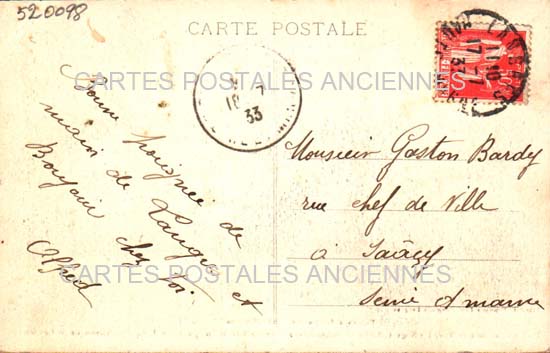 520098
CARTE POSTALE
18 7
33
17-7
33
Bonne poignée de
main de Langres et
Bonjour chez toi
Alfred
Monsieur Gaston Bardy
rue chef de Ville
à Saâcy
Seine et marne
CARTES POSTALES ANCIENNES
CARTES POSTALES ANCIENNES